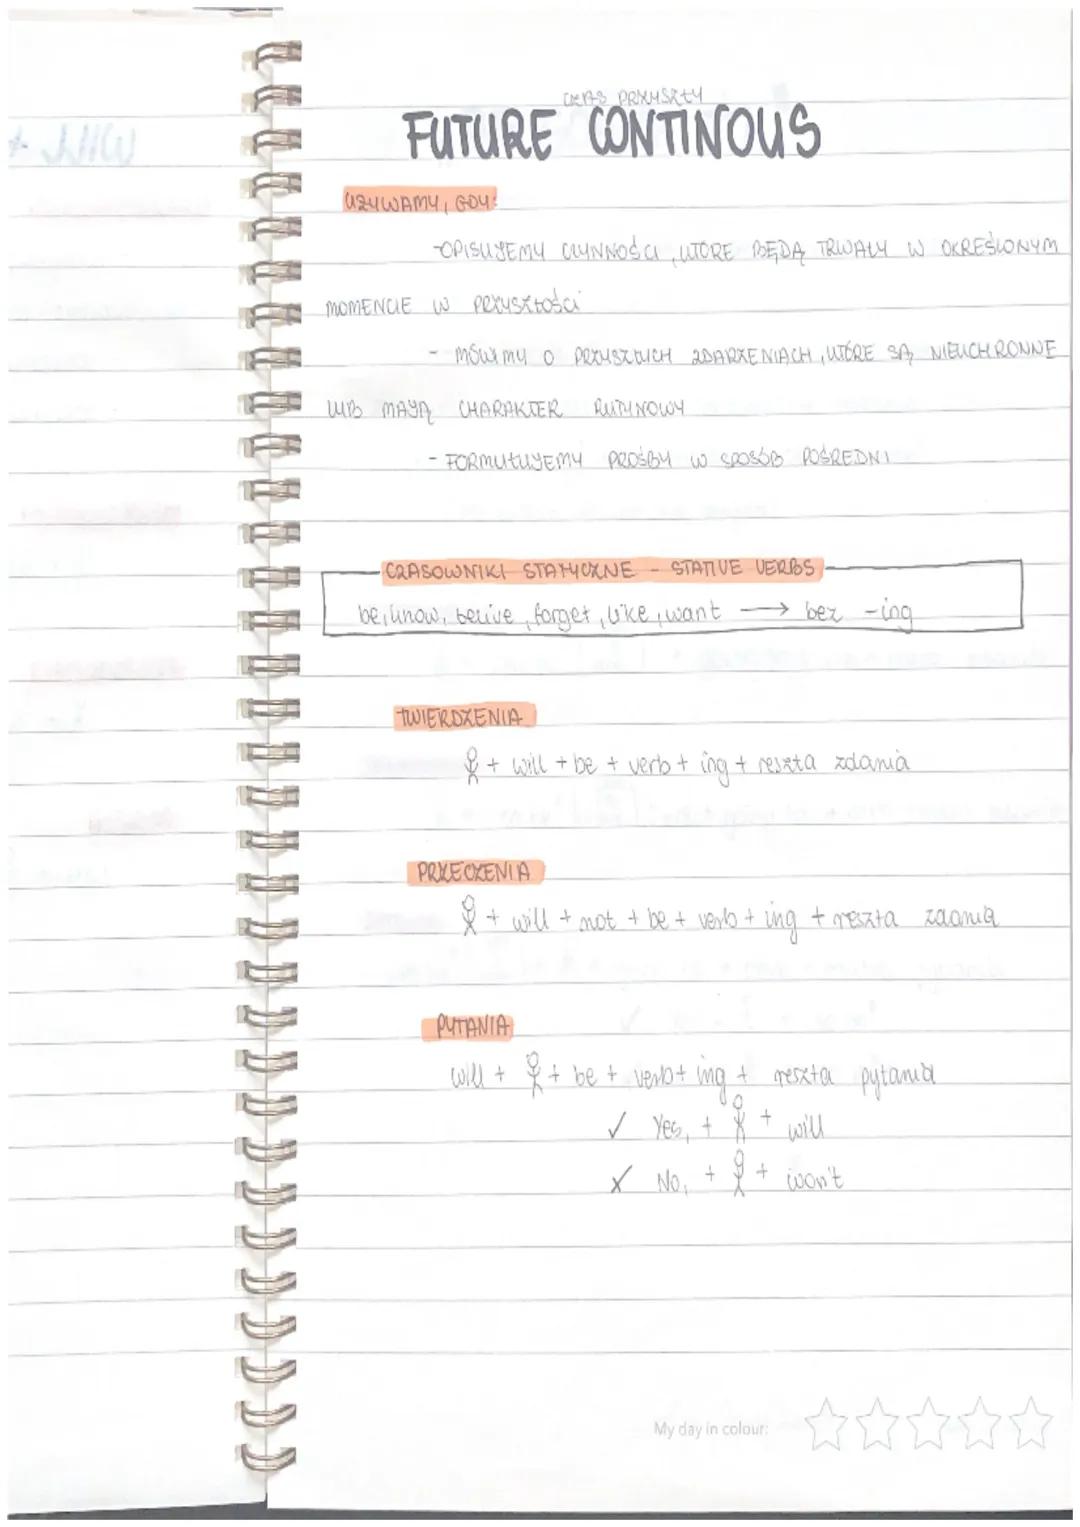 CZAS PRZYSZŁY
FUTURE CONTINOUS
UŻYWAMY, GDY:
-OPISUJEMY CZYNNOŚCI, KTÓRE BĘDĄ TRWAŁY W OKREŚLONYM
MOMENCIE W PRZYSZŁOŚCI
- MÓWIMY O PRZYSZŁYCH ZDARZENIACH, KTÓRE SĄ NIEUCHRONNE
LUB MAJĄ CHARAKTER RUTYNOWY
- FORMUŁUJEMY PROŚBY W SPOSÓB POŚREDNI
CZASOWNIKI STATYCZNE - STATIVE VERBS
be, know, belive, forget, like, want → bez -ing
TWIERDZENIA
+ will + be + verb + ing + reszta zdania
PRZECZENIA
+ will + not + be + verb + ing + reszta zdania
PYTANIA
will + + be + verb + ing + reszta pytania
✓ Yes, + + will
✗ No, + + won't
My day in colour: